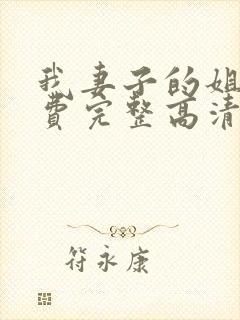 我妻子的姐
费完整高清
符永康